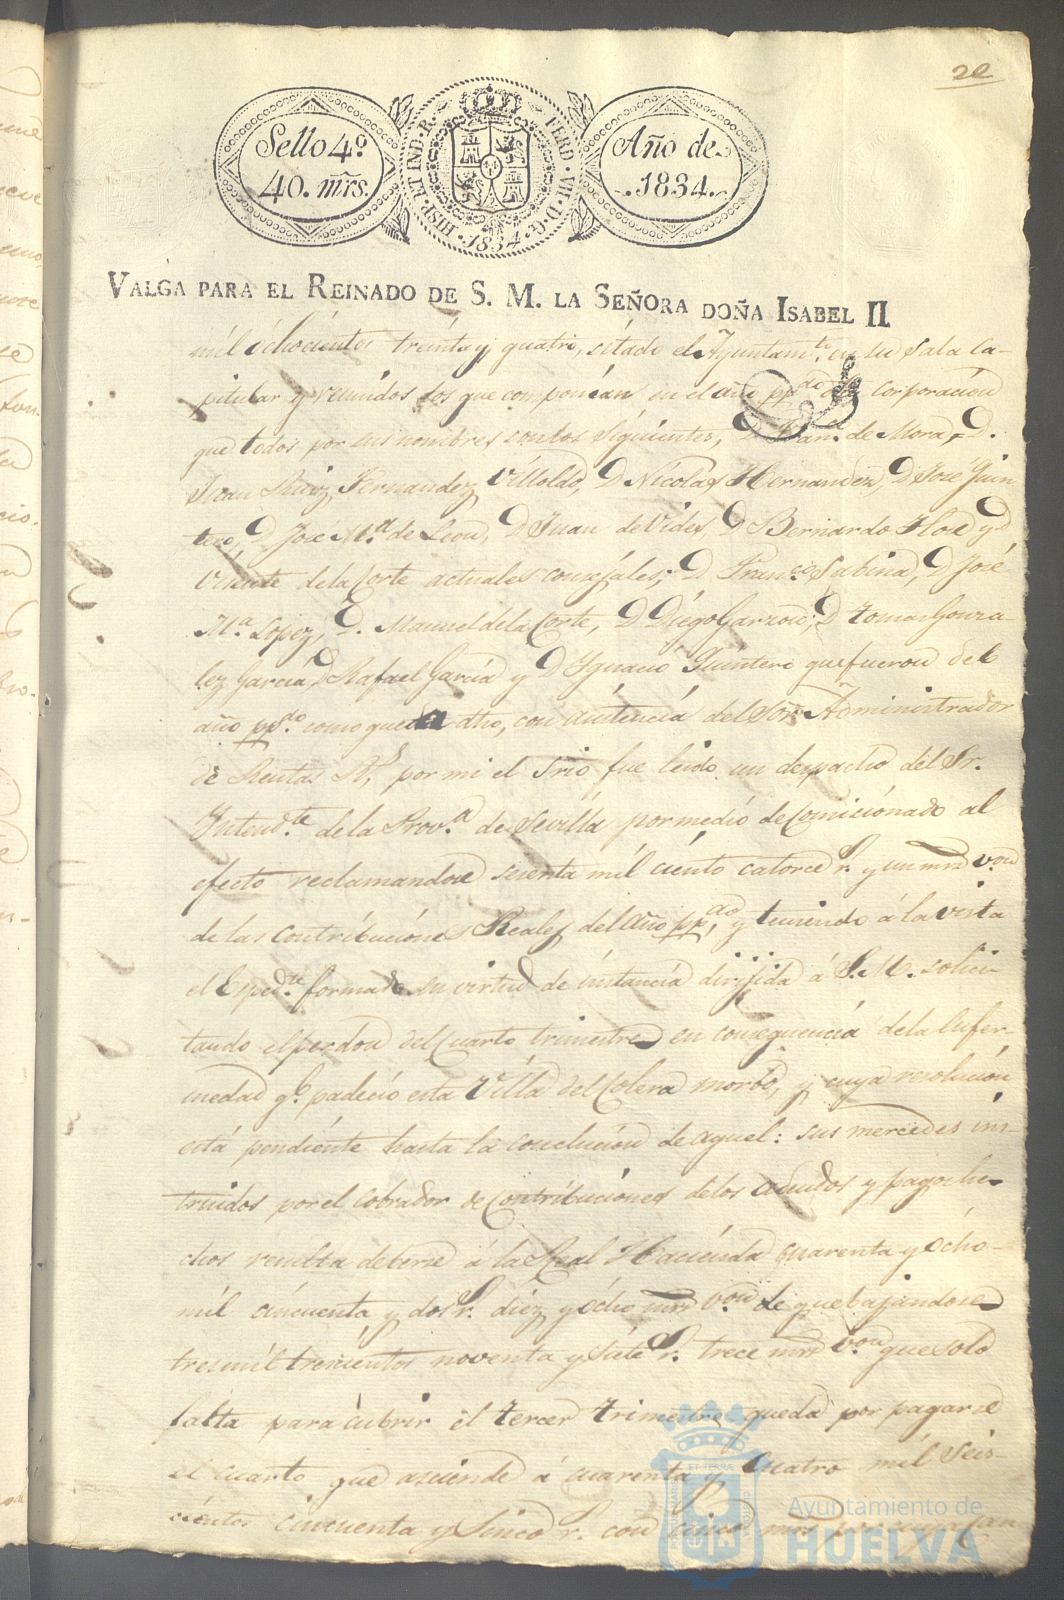 20
Sello 4º
40. mrs.
HISP. ET IND. R. FERD. VII. D. G. 1834
Año de
1834.
VALGA PARA EL REINADO DE S. M. LA SEÑORA DOÑA ISABEL II
mil ochocientos treinta y quatro, sitado el Ayuntamto. en su sala ca-
pitular y reunidos los que componian en el año ppdo. corporacion
que todos por sus nombres son los siguientes, D. de Mora, D.
Juan Ruiz Fernandez Villoldo, D Nicolas Hernandez, D José Quin
tero, D José Ma. de Leon, D Juan de Vides, D Bernardo Flor y D
Visente de la Corte actuales consejales; D Franco. Sabina, D José
Ma. Lopez, D. Manuel de la Corte, D Diego Garzon; D Tomas Gonza-
lez Garcia, D Rafael Garcia y D Ygnacio Quintero que fueron del
año ppdo. como queda dho, con asistencia del Sor. Administrador
de Rentas Rs, por mi el Srio fue leido un despacho del Sr.
Yntendte. de la Prova. de Sevilla por medio de Comicionado al
efecto reclamandose sesenta mil ciento catorce rs. y un mrs von
de las contribuciones Reales del año ppdo, y teniendo á la vista
el Espedte. formado en virtud de instancia dirijida á S.M. solici-
tando el perdon del Cuarto trimestre en consequencia de la Enfer-
medad qe. padecio esta Villa del Colera morbo, y cuya resolucion
está pendiente hasta la conclucion de aquel: sus mercedes ins-
truidos por el Cobrador de Contribuciones de los y pagos he-
chos resulta deberse á la Real Hacienda quarenta y ocho
mil cincuenta y dos rs. diez y ocho mrs von de que bajandose
tres mil tresientos noventa y siete rs. trece mrs von que solo
falta para cubrir el tercer trimestre queda por pagarse
el cuarto que asciende á cuarenta y Quatro mil Seis
cientos cincuenta y sinco rs. con cinco mrs
Ayuntamiento de
HUELVA